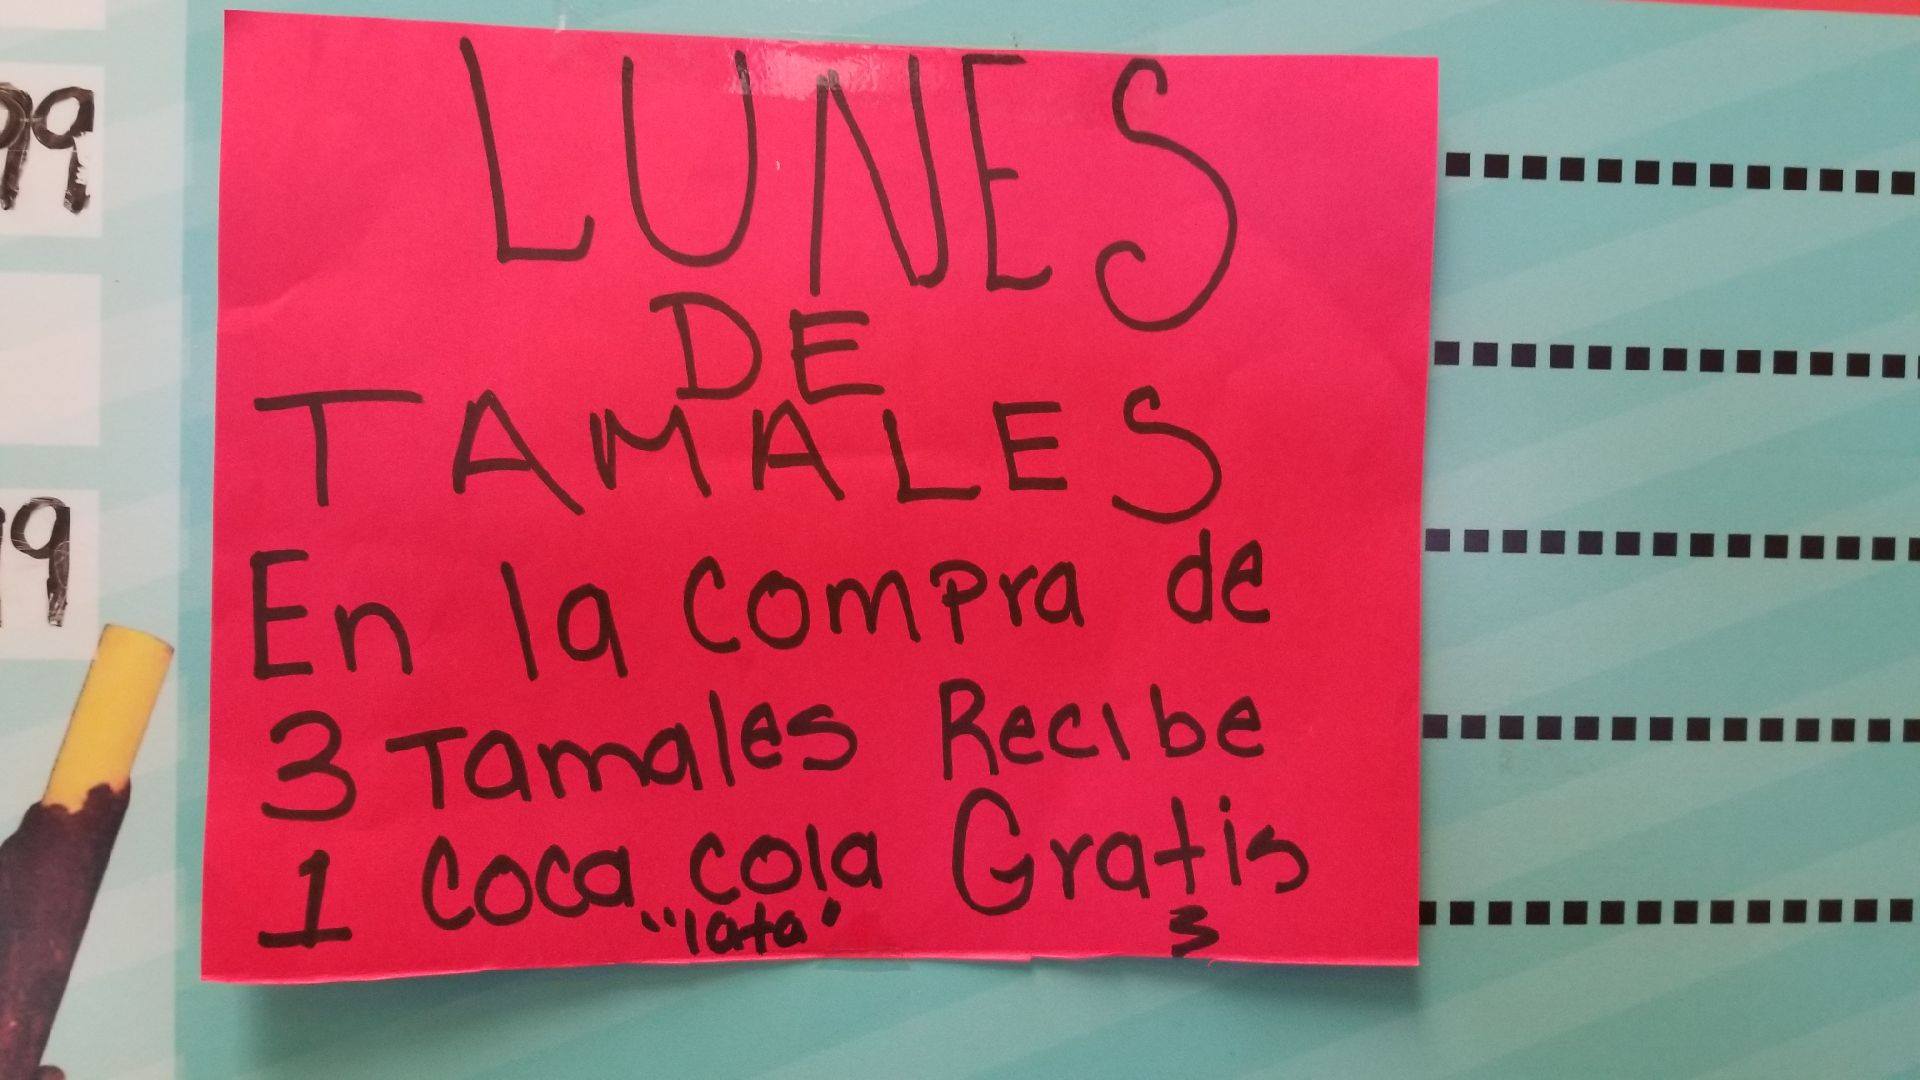 LUNES
DE
TAMALES
En la compra de
3 Tamales Recibe
1 Coca cola Gratis
"lata"
99